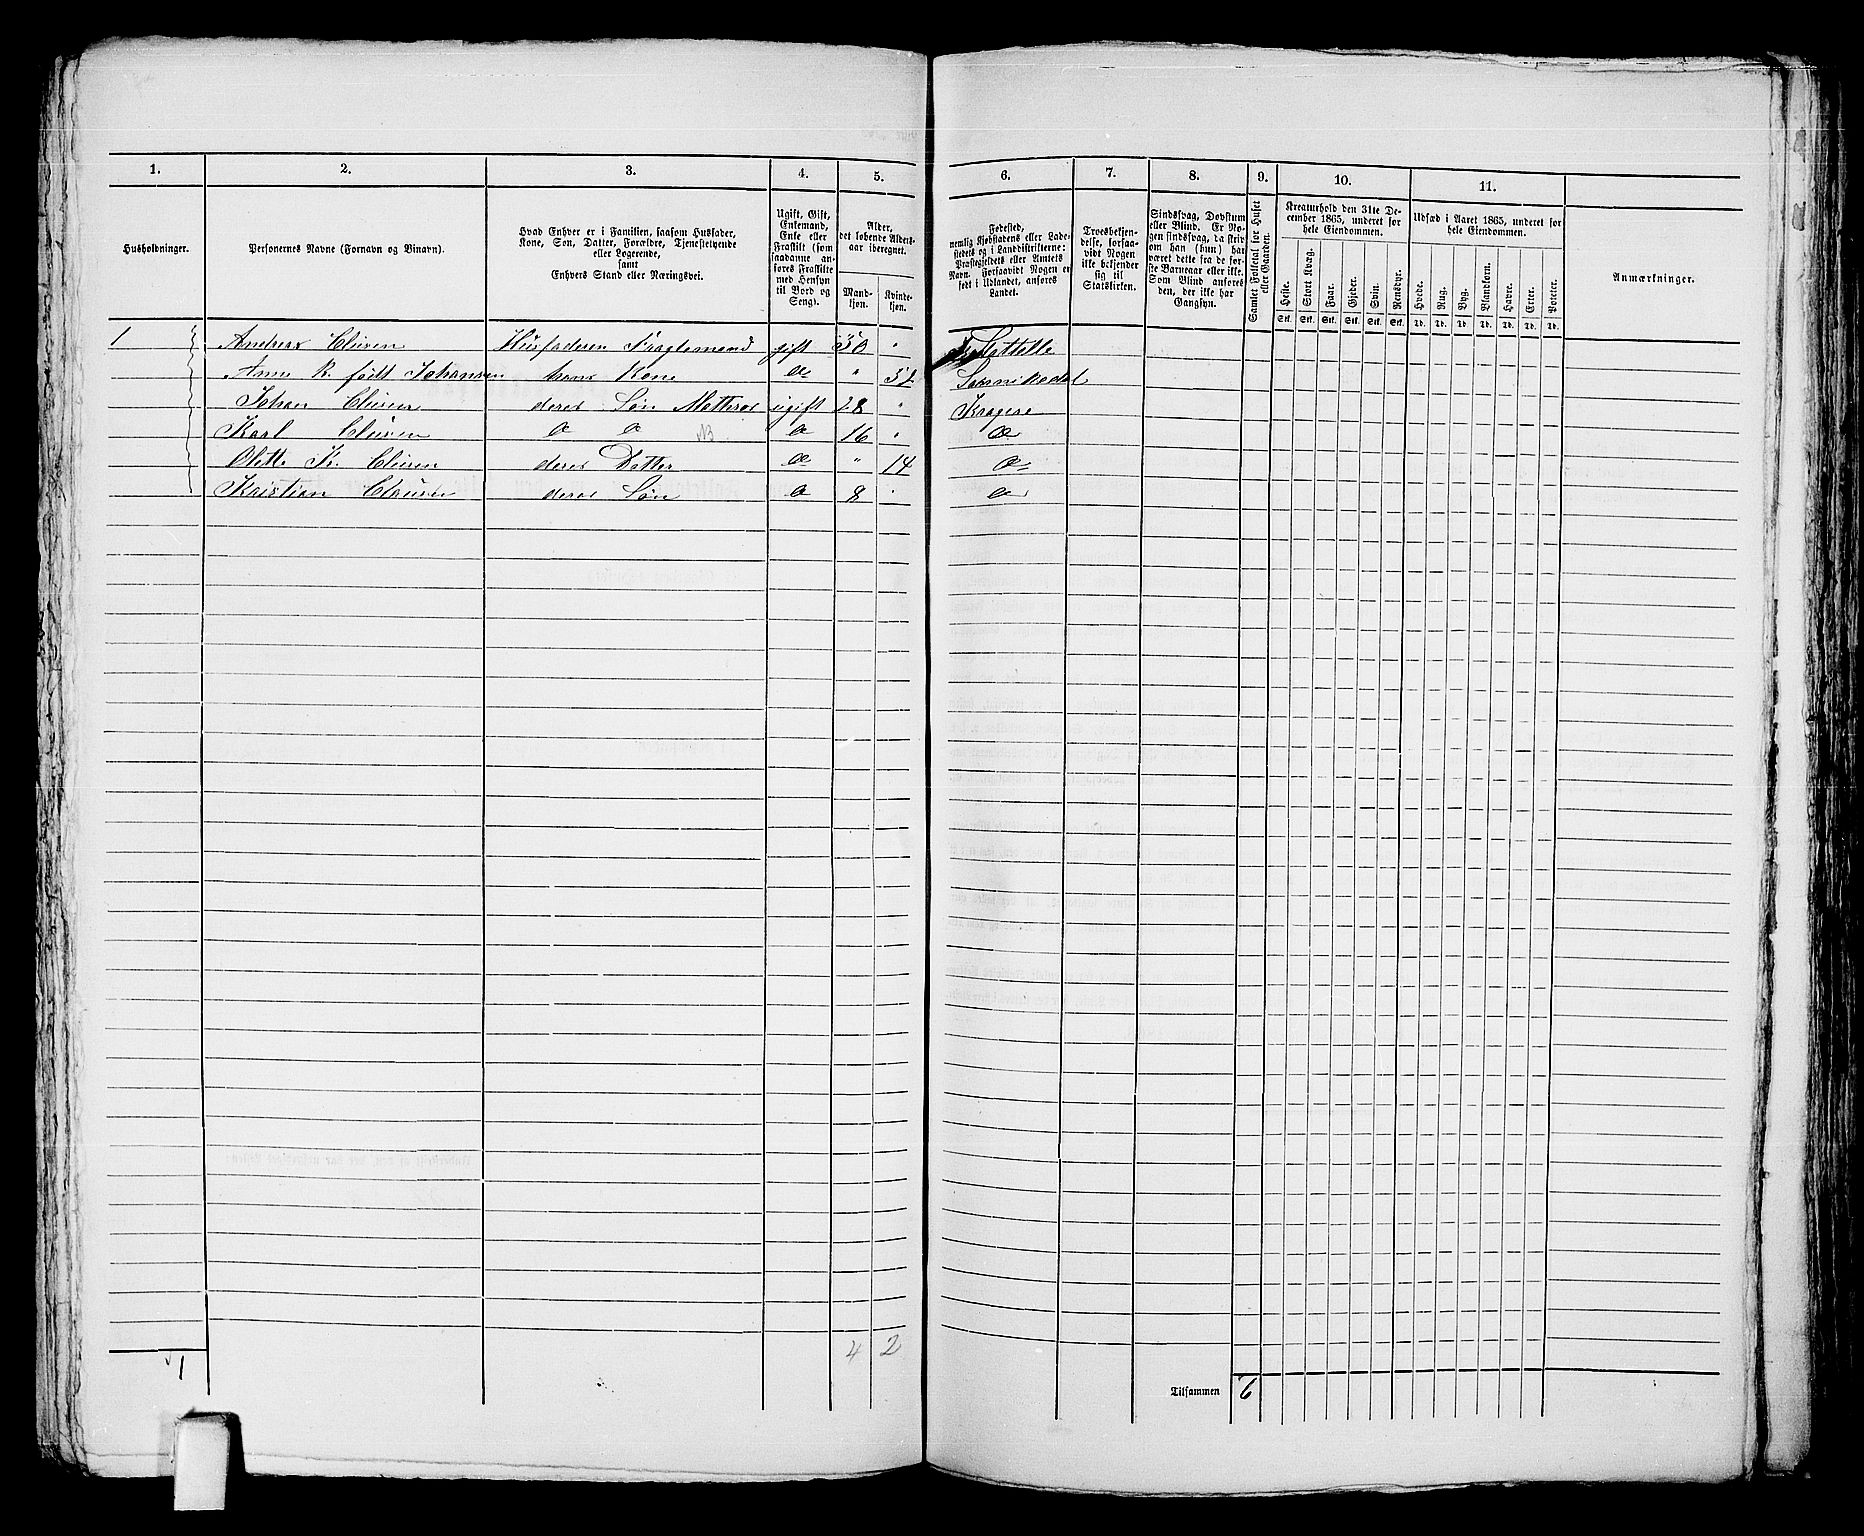 1. 2. 3. 4. 5. 6. 7. 8. 9. 10. 11.
Husholdninger.
Personernes Navne (Fornavn og Binavn).
Hvad Enhver er i Familien, saasom Husfader, Kone, Søn, Datter, Forældre, Tjenestetyende eller Logerende, samt Enhvers Stand eller Næringsvei.
Ugift, Gift, Enkemand, Enke eller Fraskilt (som saadanne anføres Fraskilte med Hensyn til Bord og Seng).
Alder, det løbende Aldersaar iberegnet.
Mandkjøn. Kvindekjøn.
Fødested, nemlig Kjøbstadens eller Ladestedets og i Landdistrikterne: Præstegjeldets eller Amtets Navn. Forsaavidt Nogen er født i Udlandet, anføres Landet.
Troesbekjendelse, forsaavidt Nogen ikke bekjender sig til Statskirken.
Sindssvag, Døvstum eller Blind. Er Nogen sindssvag, da skrives om han (hun) har været dette fra de første Barneaar eller ikke. Som Blind anføres den, der ikke har Gangsyn.
Samlet Folketal for Huset eller Gaarden.
Kreaturhold den 31te December 1865, underet for hele Eiendommen.
Heste. Stort Kvæg. Faar. Gjeder. Svin. Rensdyr.
Stk. Stk. Stk. Stk. Stk. Stk.
Udsæd i Aaret 1865, underet for hele Eiendommen.
Hvede. Rug. Byg. Blandkorn. Havre. Erter. Poteter.
Td. Td. Td. Td. Td. Td. Td.
Anmærkninger.
1 Andreas Clusen Husfaderen gift 50 "
Anne K. født Johansen hans Kone " 52 Sannikedal
Johan Clusen deres Søn Mathros ugift 28 " Kragerø
Karl Clusen 16 "
Olette K. Clusen deres Datter " 14
Kristian Clausen deres Søn 8 "
1 4 2
Tilsammen 6